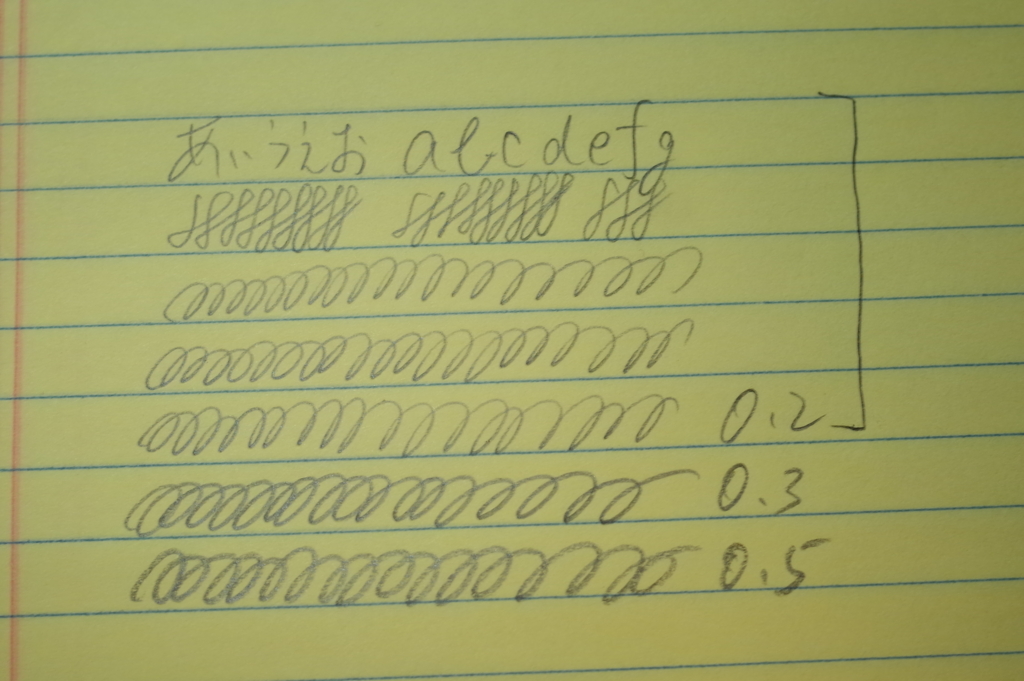 あいうえお abcdefg
0.2
0.3
0.5